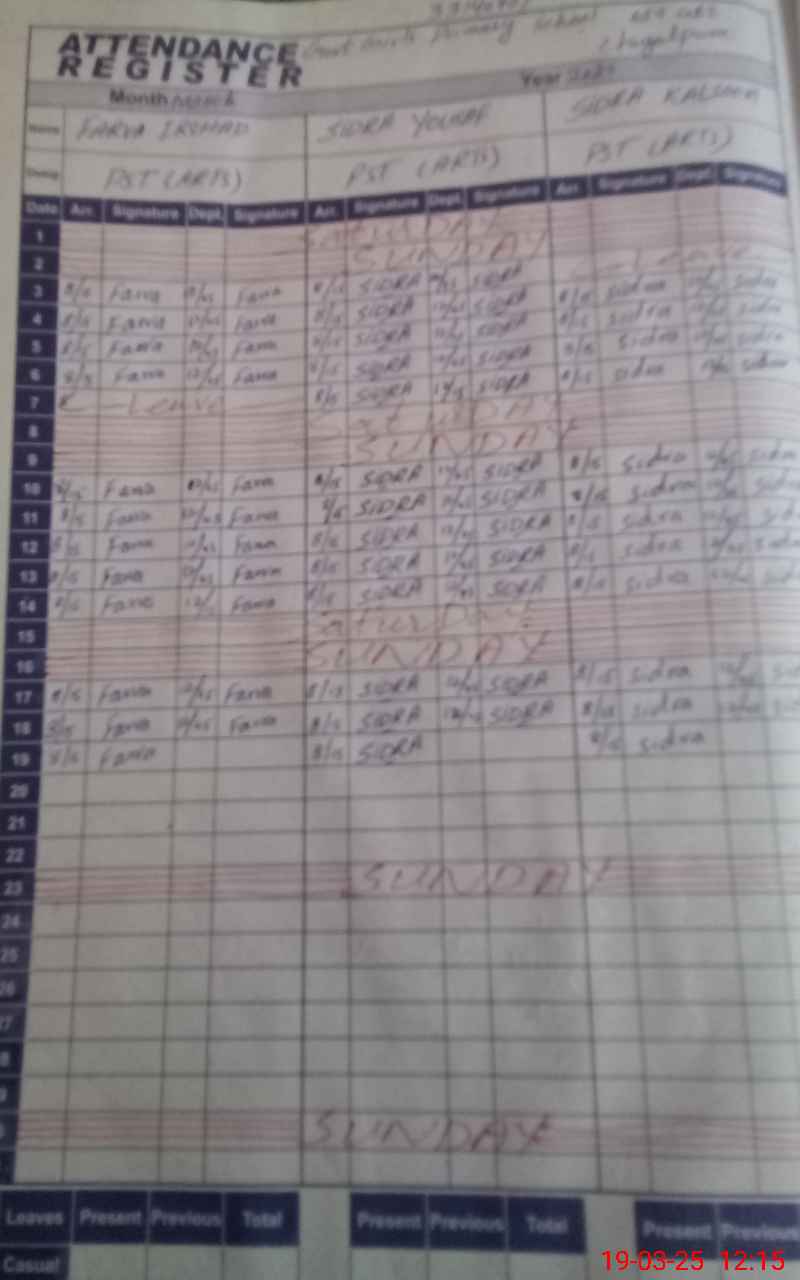 ATTENDANCE Govt Girls Primary School
REGISTER
Month March Year 2025
Name FARVA IRSHAD SIDRA YOUSAF SIDRA KALSOOM
Desig PST (ARTS) PST (ARTS) PST (ARTS)
Date Arr. Signature Dept. Signature Arr. Signature Dept. Signature Arr. Signature Dept. Signature
1 SATURDAY
2 SUNDAY
3 8/15 Farva 12/45 Farva 8/15 SIDRA 12/45 SIDRA Leave
4 8/15 Farva 12/45 Farva 8/15 SIDRA 12/45 SIDRA 8/15 sidra 12/45 sidra
5 8/15 Farva 12/45 Farva 8/15 SIDRA 12/45 SIDRA 8/15 sidra 12/45 sidra
6 8/15 Farva 12/45 Farva 8/15 SIDRA 12/45 SIDRA 8/15 sidra 12/45 sidra
7 Leave 8/15 SIDRA 12/45 SIDRA 8/15 sidra 12/45 sidra
8 Saturday
9 SUNDAY
10 8/15 Farva 12/45 Farva 8/15 SIDRA 12/45 SIDRA 8/15 sidra 12/45 sidra
11 8/15 Farva 12/45 Farva 8/15 SIDRA 12/45 SIDRA 8/15 sidra 12/45
12 8/15 Farva 12/45 Farva 8/15 SIDRA 12/45 SIDRA 8/15 sidra 12/45
13 8/15 Farva 12/45 Farva 8/15 SIDRA 12/45 SIDRA 8/15 sidra 12/45
14 8/15 Farva 12/45 Farva 8/15 SIDRA 12/45 SIDRA 8/15 sidra 12/45
15 Saturday
16 SUNDAY
17 8/15 Farva 12/45 Farva 8/15 SIDRA 12/45 SIDRA 8/15 sidra 12/45
18 8/15 Farva 12/45 Farva 8/15 SIDRA 12/45 SIDRA 8/15 sidra 12/45
19 8/15 Farva 8/15 SIDRA 8/15 sidra
20
21
22
23 SUNDAY
24
25
26
SUNDAY
Leaves Present Previous Total Present Previous Total Present Previous
Casual
19-03-25 12:15